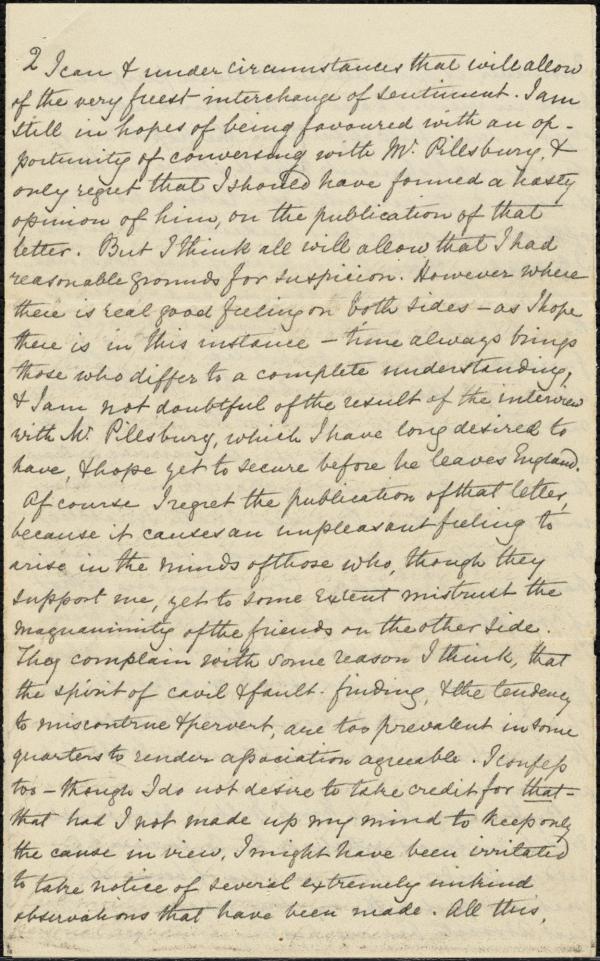 2 I can & under circumstances that will allow
of the very freest interchange of sentiment. I am
still in hopes of being favoured with an op-
portunity of conversing with Mr. Pillsbury, &
only regret that I should have formed a hasty
opinion of him, on the publication of that
letter. But I think all will allow that I had
reasonable grounds for suspicion. However where
there is real good feeling on both sides – as I hope
there is in this instance – time always brings
those who differ to a complete understanding,
& I am not doubtful of the result of the interview
with Mr. Pillsbury, which I have long desired to
have, & hope yet to secure before he leaves England.
Of course I regret the publication of that letter,
because it causes an unpleasant feeling to
arise in the minds of those who, though they
support me, yet to some extent mistrust the
magnanimity of the friends on the other side.
They complain with some reason I think, that
the spirit of cavil & fault-finding, & the tendency
to misconstrue & pervert, are too prevalent in some
quarters to render association agreeable. I confess
too – though I do not desire to take credit for that –
that had I not made up my mind to keep only
the cause in view, I might have been irritated
to take notice of several extremely unkind
observations that have been made. All this,